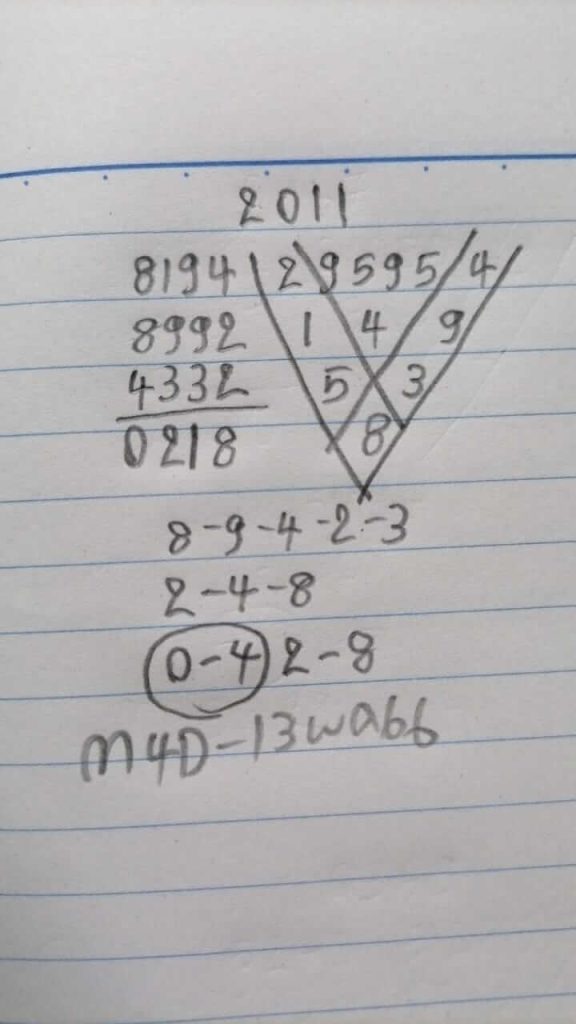 2011
8194 2 9595 4
8992 1 4 9
4332 5 3
0218 8
8-9-4-2-3
2-4-8
0-4 2-8
m4D-13wabb